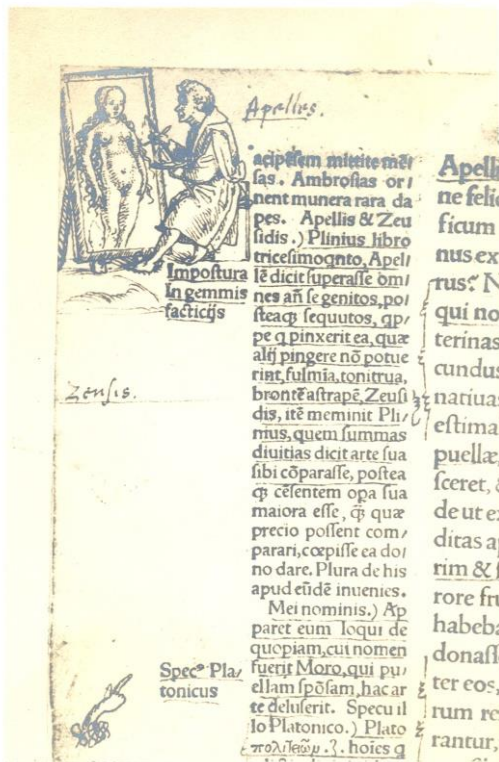 Apelles.
acipesem mittite mēsas. Ambrosias or
nent munera rara da
pes. Apellis & Zeu
sidis.) Plinius libro
tricesimoqnto, Apel
lē dicit superasse om
nes añ se genitos, pos
steaq; sequutos, qp
pe q pinxerit ea, quæ
alij pingere nō potue
rint, fulmīa, tonitrua,
brontē astrapē, Zeusi
dis, itē meminit Pli
nius, quem summas
diuitias dicit arte sua
sibi cōparasse, postea
q; cēsentem opa sua
maiora esse, q̄ quæ
precio possent com
parari, cœpisse ea do
no dare. Plura de his
apud eūdē inuenies.
Mei nominis.) Ap
paret eum loqui de
quopiam, cui nomen
fuerit Moro, qui pu
ellam spōsam, hac ar
te deluserit. Specu il
lo Platonico.) Plato
πολιτειῶν .3. hoīes q
Impostura
In gemmis
facticijs
Zeusis.
Spec⁹ Pla
tonicus
Apell
ne felic
ficum
nus ex
rus? N
qui no
terinas
cundus
natiuas
estima
puellæ,
sceret, &
de ut ex
ditas a
rim & f
rore fru
habeba
donass
ter eos,
rum re
rantur,